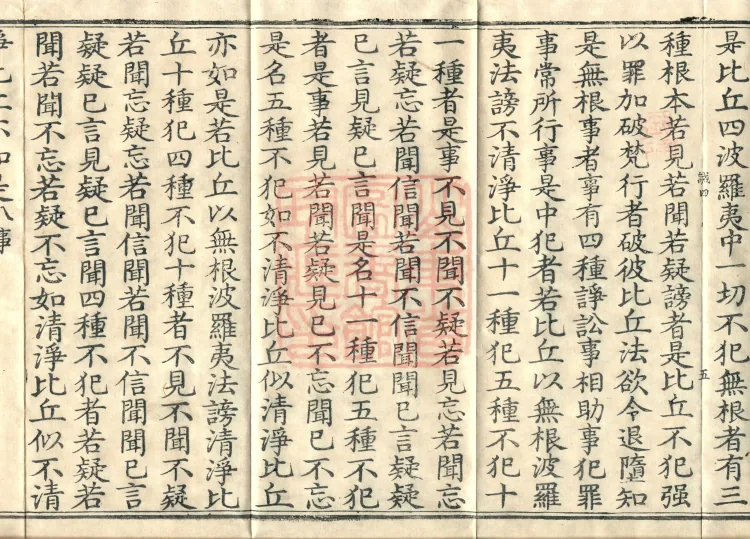 是比丘四波羅夷中一切不犯無根者有三
種根本若見若聞若疑謗者是比丘不犯强
以罪加破梵行者破彼比丘法欲令退墮知
是無根事者事有四種諍訟事相助事犯罪
五
事常所行事是中犯者若比丘以無根波羅
夷法謗不清淨比丘十一種犯五種不犯十
一種者是事不見不聞不疑若見忘若聞忘
若疑忘若聞信聞若聞不信聞聞已言疑疑
已言見疑已言聞是名十一種犯五種不犯
者是事若見若聞若疑見已不忘聞已不忘
是名五種不犯如不清淨比丘似清淨比丘
亦如是若比丘以無根波羅夷法謗清淨比
丘十種犯四種不犯十種者不見不聞不疑
若聞忘疑忘若聞信聞若聞不信聞聞已言
疑疑已言見疑已言聞四種不犯者若疑若
聞若聞不忘若疑不忘如清淨比丘似不清